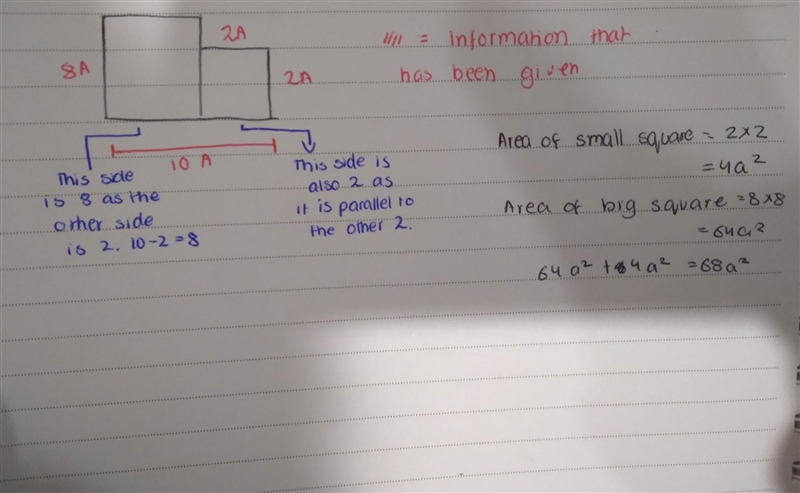 2A
8A
2A
10 A
//// = Information that
has been given
This side
is 8 as the
other side
is 2. 10-2=8
This side is
also 2 as
it is parallel to
the other 2.
Area of small square = 2×2
= 4a²
Area of big square = 8×8
= 64a²
64a² + 4a² = 68a²